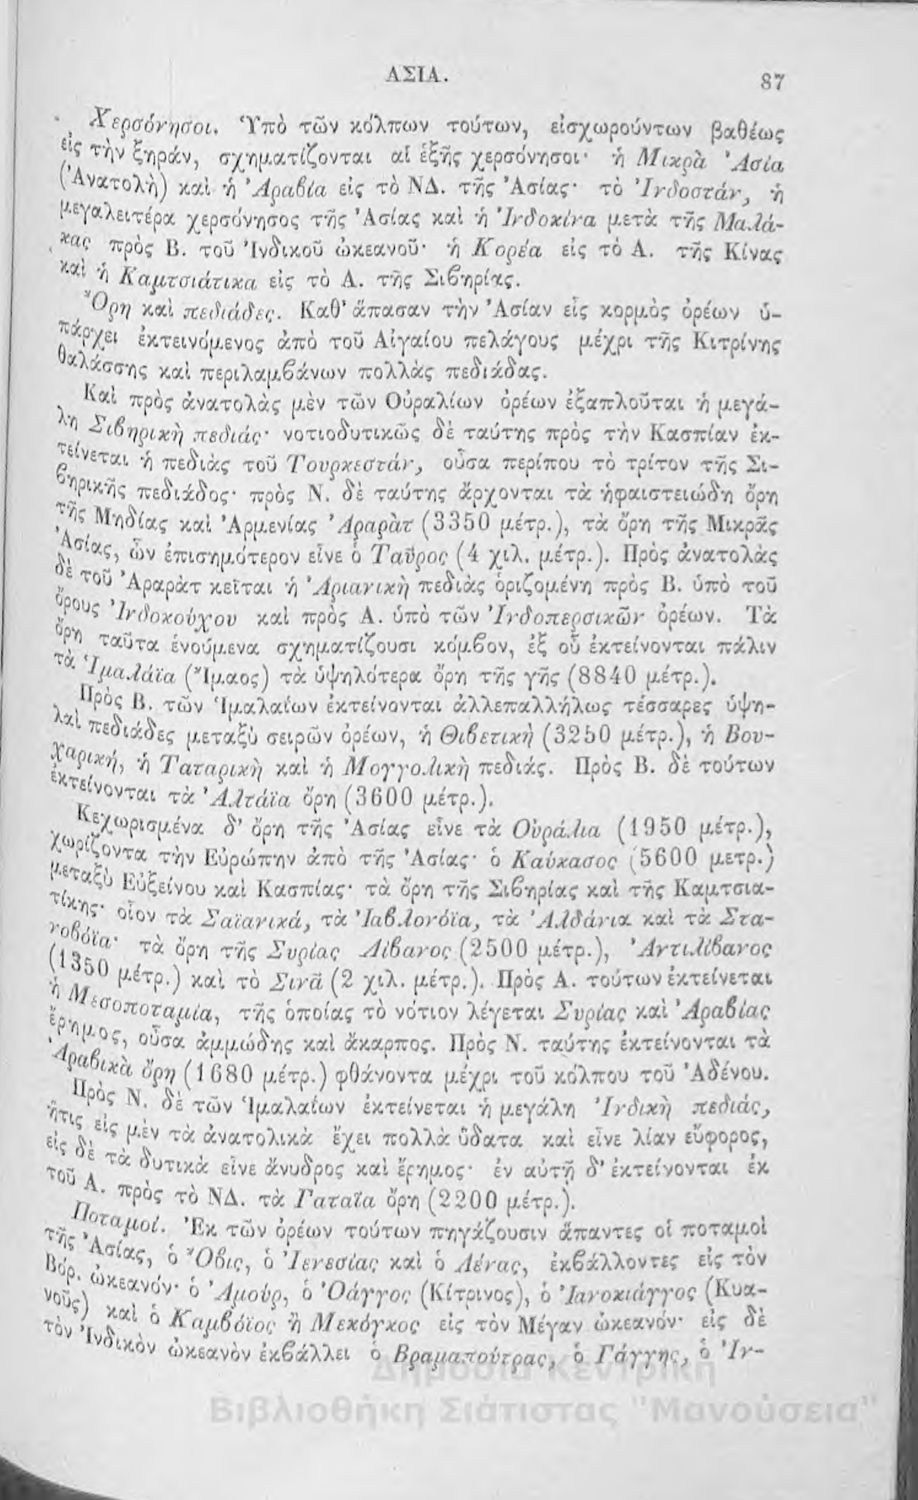 ΑΣΙΑ.
87
Χερσόνησοι. Ὑπὸ τῶν κόλπων τούτων, εἰσχωρούντων βαθέως
εἰς τὴν ξηράν, σχηματίζονται αἱ ἑξῆς χερσόνησοι· ἡ Μικρὰ Ἀσία
(Ἀνατολὴ) καὶ ἡ Ἀραβία εἰς τὸ ΝΔ. τῆς Ἀσίας· τὸ Ἰνδοστάν, ἡ
μεγαλειτέρα χερσόνησος τῆς Ἀσίας καὶ ἡ Ἰνδοκίνα μετὰ τῆς Μαλά-
κας πρὸς Β. τοῦ Ἰνδικοῦ ὠκεανοῦ· ἡ Κορέα εἰς τὸ Α. τῆς Κίνας
καὶ ἡ Καμτσιάτικα εἰς τὸ Α. τῆς Σιβηρίας.
Ὄρη καὶ πεδιάδες. Καθ' ἅπασαν τὴν Ἀσίαν εἷς κορμὸς ὀρέων ὑ-
πάρχει ἐκτεινόμενος ἀπὸ τοῦ Αἰγαίου πελάγους μέχρι τῆς Κιτρίνης
θαλάσσης καὶ περιλαμβάνων πολλὰς πεδιάδας.
Καὶ πρὸς ἀνατολὰς μὲν τῶν Οὐραλίων ὀρέων ἐξαπλοῦται ἡ μεγά-
λη Σιβηρικὴ πεδιάς· νοτιοδυτικῶς δὲ ταύτης πρὸς τὴν Κασπίαν ἐκ-
τείνεται ἡ πεδιὰς τοῦ Τουρκεστάν, οὖσα περίπου τὸ τρίτον τῆς Σι-
βηρικῆς πεδιάδος· πρὸς Ν. δὲ ταύτης ἄρχονται τὰ ἡφαιστειώδη ὄρη
τῆς Μηδίας καὶ Ἀρμενίας Ἀραρὰτ (3350 μέτρ.), τὰ ὄρη τῆς Μικρᾶς
Ἀσίας, ὧν ἐπισημότερον εἶνε ὁ Ταῦρος (4 χιλ. μέτρ.). Πρὸς ἀνατολὰς
δὲ τοῦ Ἀραρὰτ κεῖται ἡ Ἀριανικὴ πεδιὰς ὁριζομένη πρὸς Β. ὑπὸ τοῦ
ὄρους Ἰνδοκούχου καὶ πρὸς Α. ὑπὸ τῶν Ἰνδοπερσικῶν ὀρέων. Τὰ
ὄρη ταῦτα ἑνούμενα σχηματίζουσι κόμβον, ἐξ οὗ ἐκτείνονται πάλιν
τὰ Ἱμαλάϊα (Ἴμαος) τὰ ὑψηλότερα ὄρη τῆς γῆς (8840 μέτρ.).
Πρὸς Β. τῶν Ἱμαλαΐων ἐκτείνονται ἀλλεπαλλήλως τέσσαρες ὑψη-
λαὶ πεδιάδες μεταξὺ σειρῶν ὀρέων, ἡ Θιβετικὴ (3250 μέτρ.), ἡ Βου-
χαρική, ἡ Ταταρικὴ καὶ ἡ Μογγολικὴ πεδιάς. Πρὸς Β. δὲ τούτων
ἐκτείνονται τὰ Ἀλτάϊα ὄρη (3600 μέτρ.).
Κεχωρισμένα δ' ὄρη τῆς Ἀσίας εἶνε τὰ Οὐράλια (1950 μέτρ.),
χωρίζοντα τὴν Εὐρώπην ἀπὸ τῆς Ἀσίας· ὁ Καύκασος (5600 μετρ.)
μεταξὺ Εὐξείνου καὶ Κασπίας· τὰ ὄρη τῆς Σιβηρίας καὶ τῆς Καμτσια-
τίκης· οἷον τὰ Σαϊανικά, τὰ Ἰαβλονόϊα, τὰ Ἀλδάνια καὶ τὰ Στα-
νοβόϊα· τὰ ὄρη τῆς Συρίας Λίβανος (2500 μέτρ.), Ἀντιλίβανος
(1350 μέτρ.) καὶ τὸ Σινᾶ (2 χιλ. μέτρ.). Πρὸς Α. τούτων ἐκτείνεται
ἡ Μεσοποταμία, τῆς ὁποίας τὸ νότιον λέγεται Συρίας καὶ Ἀραβίας
ἔρημος, οὖσα ἀμμώδης καὶ ἄκαρπος. Πρὸς Ν. ταύτης ἐκτείνονται τὰ
Ἀραβικὰ ὄρη (1680 μέτρ.) φθάνοντα μέχρι τοῦ κόλπου τοῦ Ἀδένου.
Πρὸς Ν. δὲ τῶν Ἱμαλαΐων ἐκτείνεται ἡ μεγάλη Ἰνδικὴ πεδιάς,
ἥτις εἰς μὲν τὰ ἀνατολικὰ ἔχει πολλὰ ὕδατα καὶ εἶνε λίαν εὔφορος,
εἰς δὲ τὰ δυτικὰ εἶνε ἄνυδρος καὶ ἔρημος· ἐν αὐτῇ δ' ἐκτείνονται ἐκ
τοῦ Α. πρὸς τὸ ΝΔ. τὰ Γαταῖα ὄρη (2200 μέτρ.).
Ποταμοί. Ἐκ τῶν ὀρέων τούτων πηγάζουσιν ἅπαντες οἱ ποταμοὶ
τῆς Ἀσίας, ὁ Ὄβις, ὁ Ἰενεσίας καὶ ὁ Λένας, ἐκβάλλοντες εἰς τὸν
Βόρ. ὠκεανόν· ὁ Ἀμούρ, ὁ Ὁάγγος (Κίτρινος), ὁ Ἰανοκιάγγος (Κυα-
νοῦς) καὶ ὁ Καμβόϊος ἢ Μεκόγκος εἰς τὸν Μέγαν ὠκεανόν· εἰς δὲ
τὸν Ἰνδικὸν ὠκεανὸν ἐκβάλλει ὁ Βραμαπούτρας, ὁ Γάγγης, ὁ Ἰν-
Δημόσια Κεντρική
Βιβλιοθήκη Σιάτιστας "Μανούσεια"